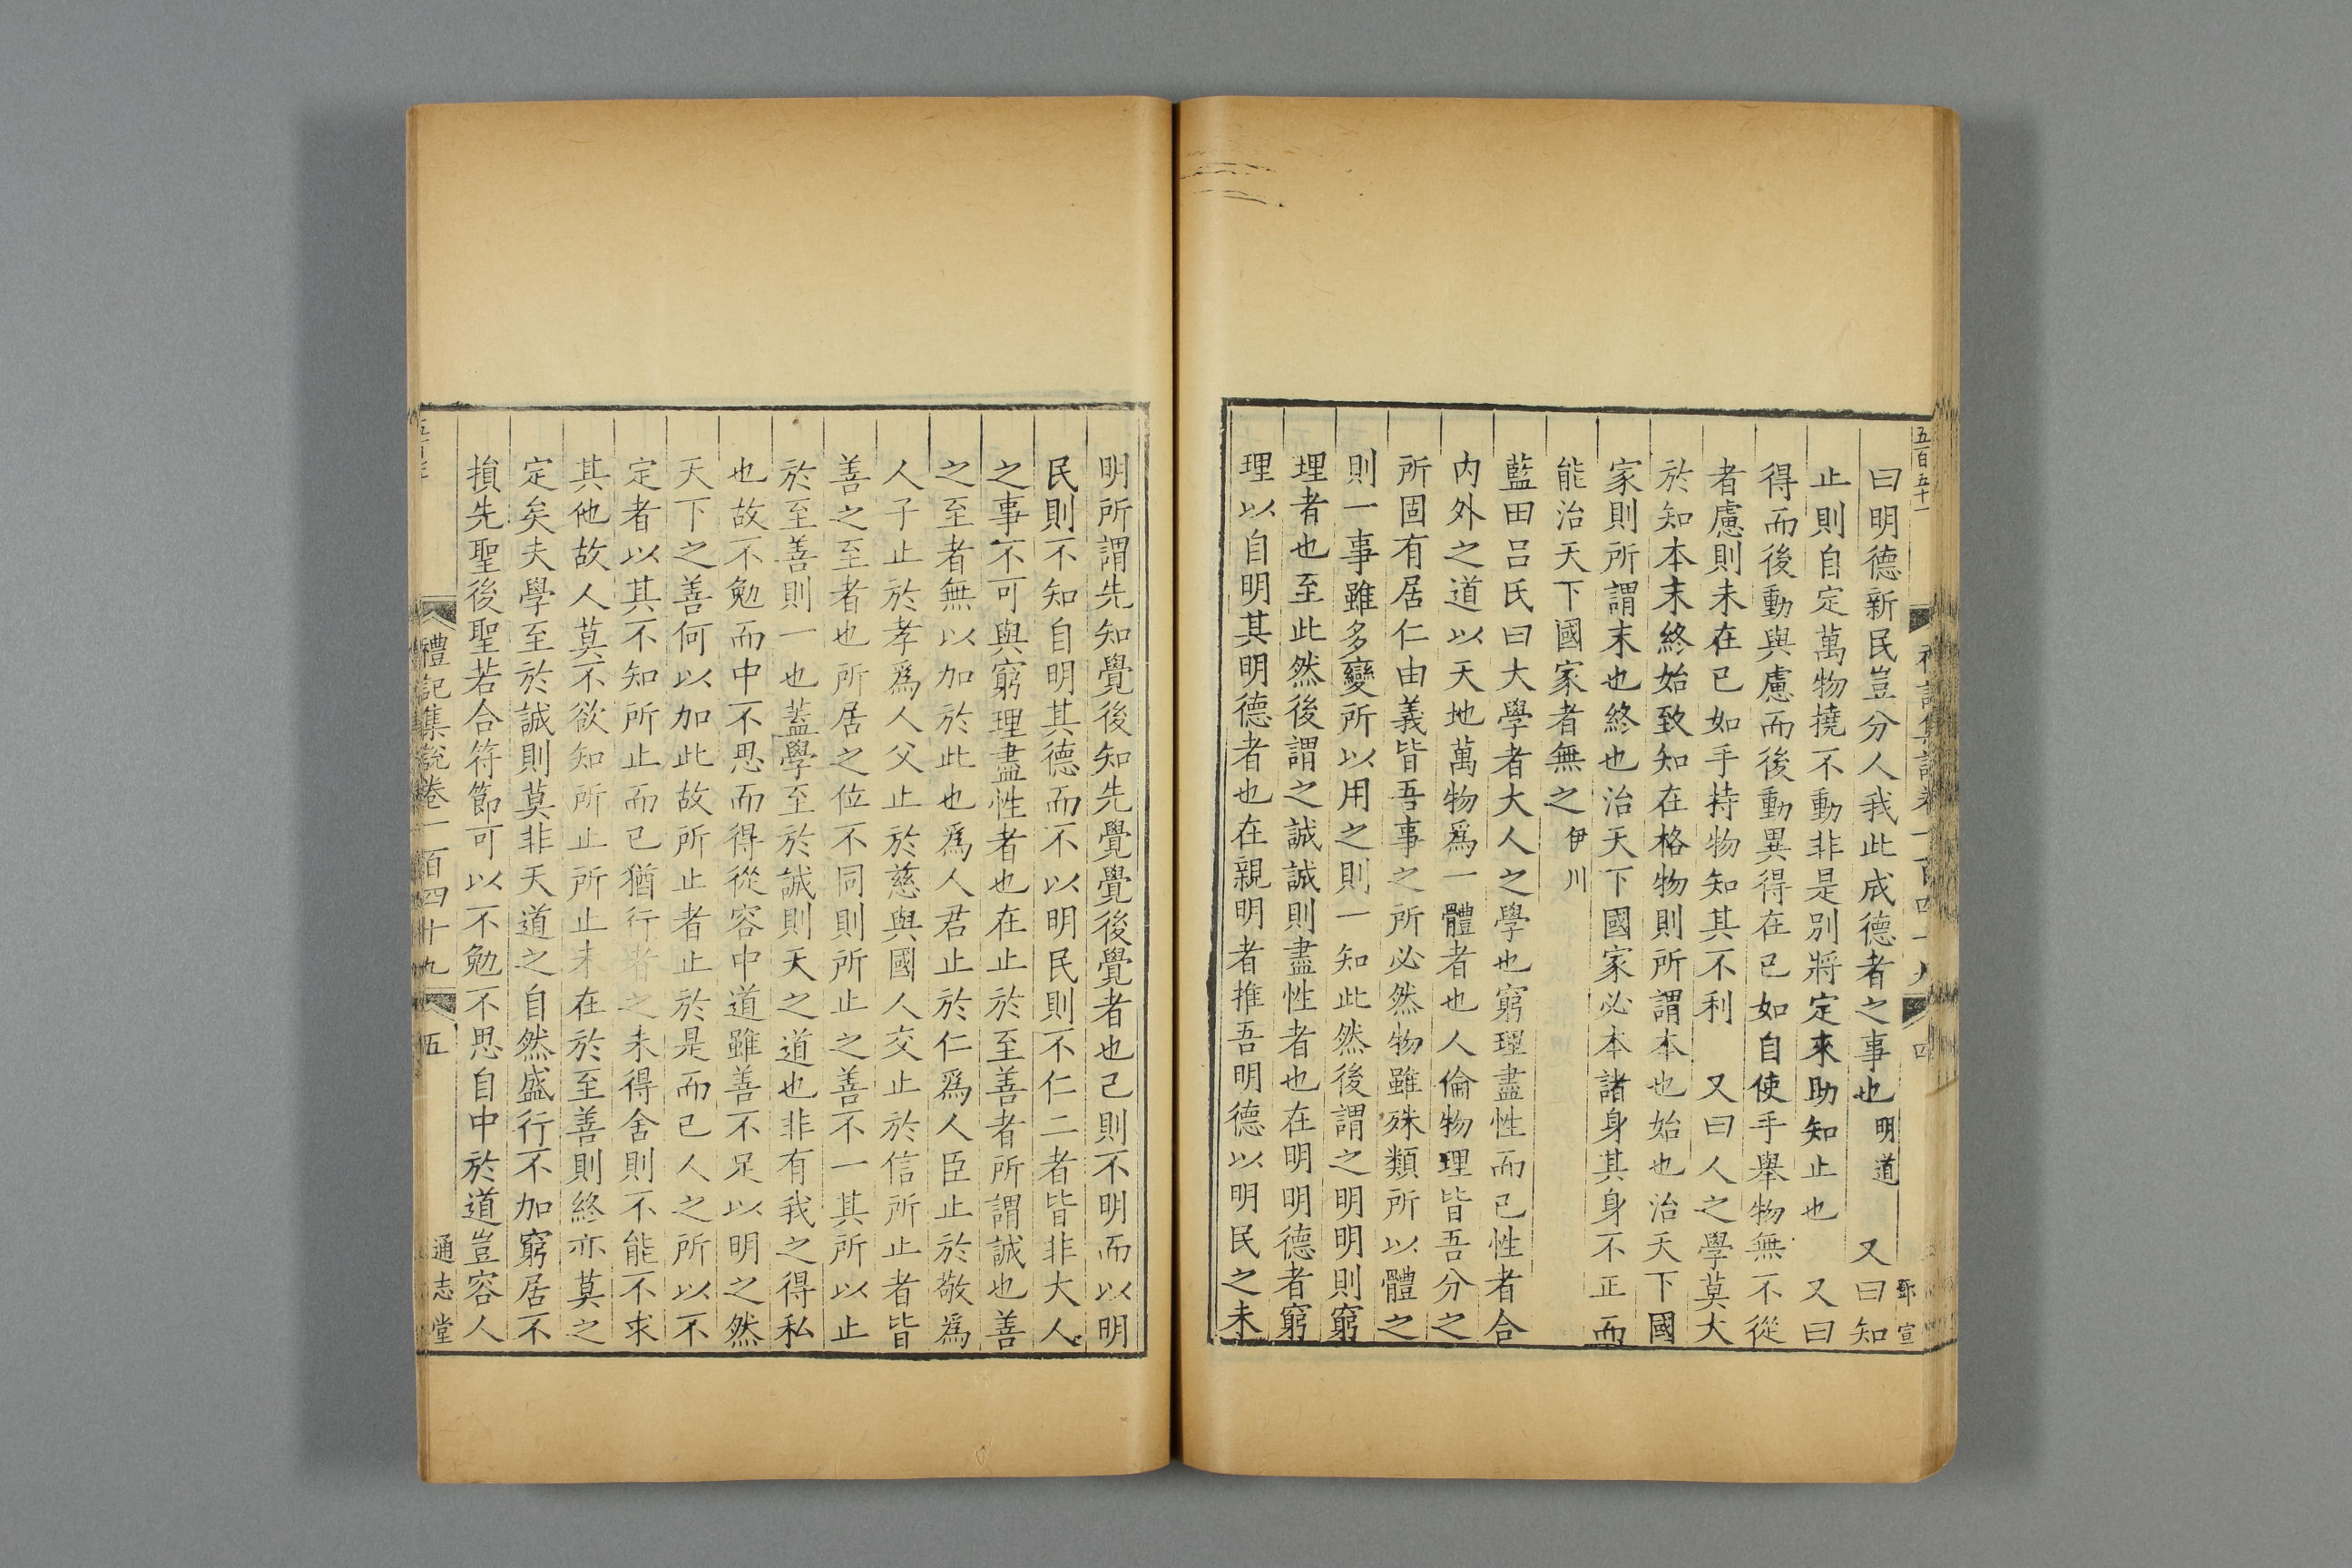 五百五十一
曰明德新民豈分人我此成德者之事也明道 又曰知
止則自定萬物撓不動非是別將定來助知止也 又曰
得而後動與慮而後動異得在已如自使手舉物無不從
者慮則未在已如手持物知其不利 又曰人之學莫大
於知本末終始致知在格物則所謂本也始也治天下國
家則所謂末也終也治天下國家必本諸身其身不正而
能治天下國家者無之伊川
藍田呂氏曰大學者大人之學也窮理盡性而已性者合
內外之道以天地萬物爲一體者也人倫物理皆吾分之
所固有居仁由義皆吾事之所必然物雖殊類所以體之
則一事雖多變所以用之則一知此然後謂之明明則窮
理者也至此然後謂之誠誠則盡性者也在明明德者窮
理以自明其明德者也在親明者推吾明德以明民之未
明所謂先知覺後知先覺覺後覺者也己則不明而以明
民則不知自明其德而不以明民則不仁二者皆非大人
之事不可與窮理盡性者也在止於至善者所謂誠也善
之至者無以加於此也爲人君止於仁爲人臣止於敬爲
人子止於孝爲人父止於慈與國人交止於信所止者皆
善之至者也所居之位不同則所止之善不一其所以止
於至善則一也蓋學至於誠則天之道也非有我之得私
也故不勉而中不思而得從容中道雖善不足以明之然
天下之善何以加此故所止者止於是而已人之所以不
定者以其不知所止而已猶行者之未得舍則不能不求
其他故人莫不欲知所止所止未在於至善則終亦莫之
定矣夫學至於誠則莫非天道之自然盛行不加窮居不
損先聖後聖若合符節可以不勉不思自中於道豈容人
禮記集說卷一百四十九 五 通志堂